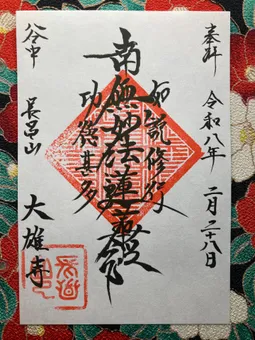 奉拝 令和八年 二月二十八日
如説修行
南無妙法蓮華経
功徳甚多
谷中 長昌山 大雄寺